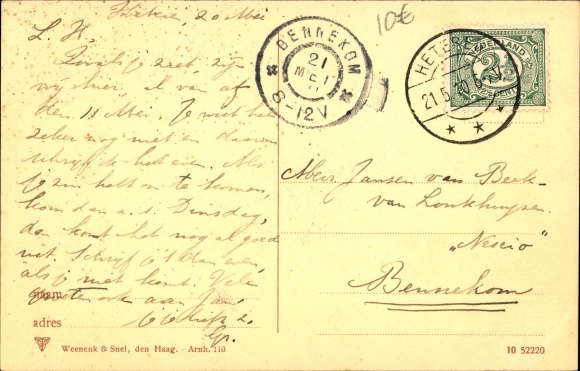 Heteren, 20 Mei
L. K,
Zooals je ziet, zijn
wij hier, al van af
den 11 Mei. Je wist het
zeker nog niet en daarom
schrijf ik het even. Als
je zin hebt om te komen,
kom dan a.s. Dinsdag,
dan komt het nog al goed
uit. Schrijf je 't dan even,
als je niet komt. Vele
groeten ook aan
naam
adres
Weenenk & Snel, den Haag. Arnh. 110
10€
BENNEKOM
21
MEI
8-12V
HETEREN
21.5.10 6-V
NEDERLAND
2½
CENT
Mevr. Jansen van Beek-
van Lonkhuyzen.
„Nescio"
Bennekom
10 52220